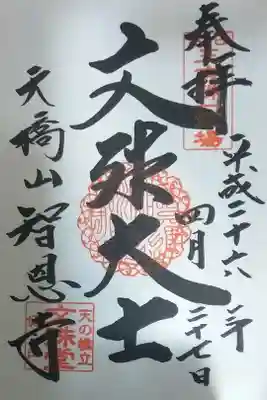 奉拝
平成二十六年
四月二十七日
文殊大士
天橋山智恩寺
天の橋立
文殊堂